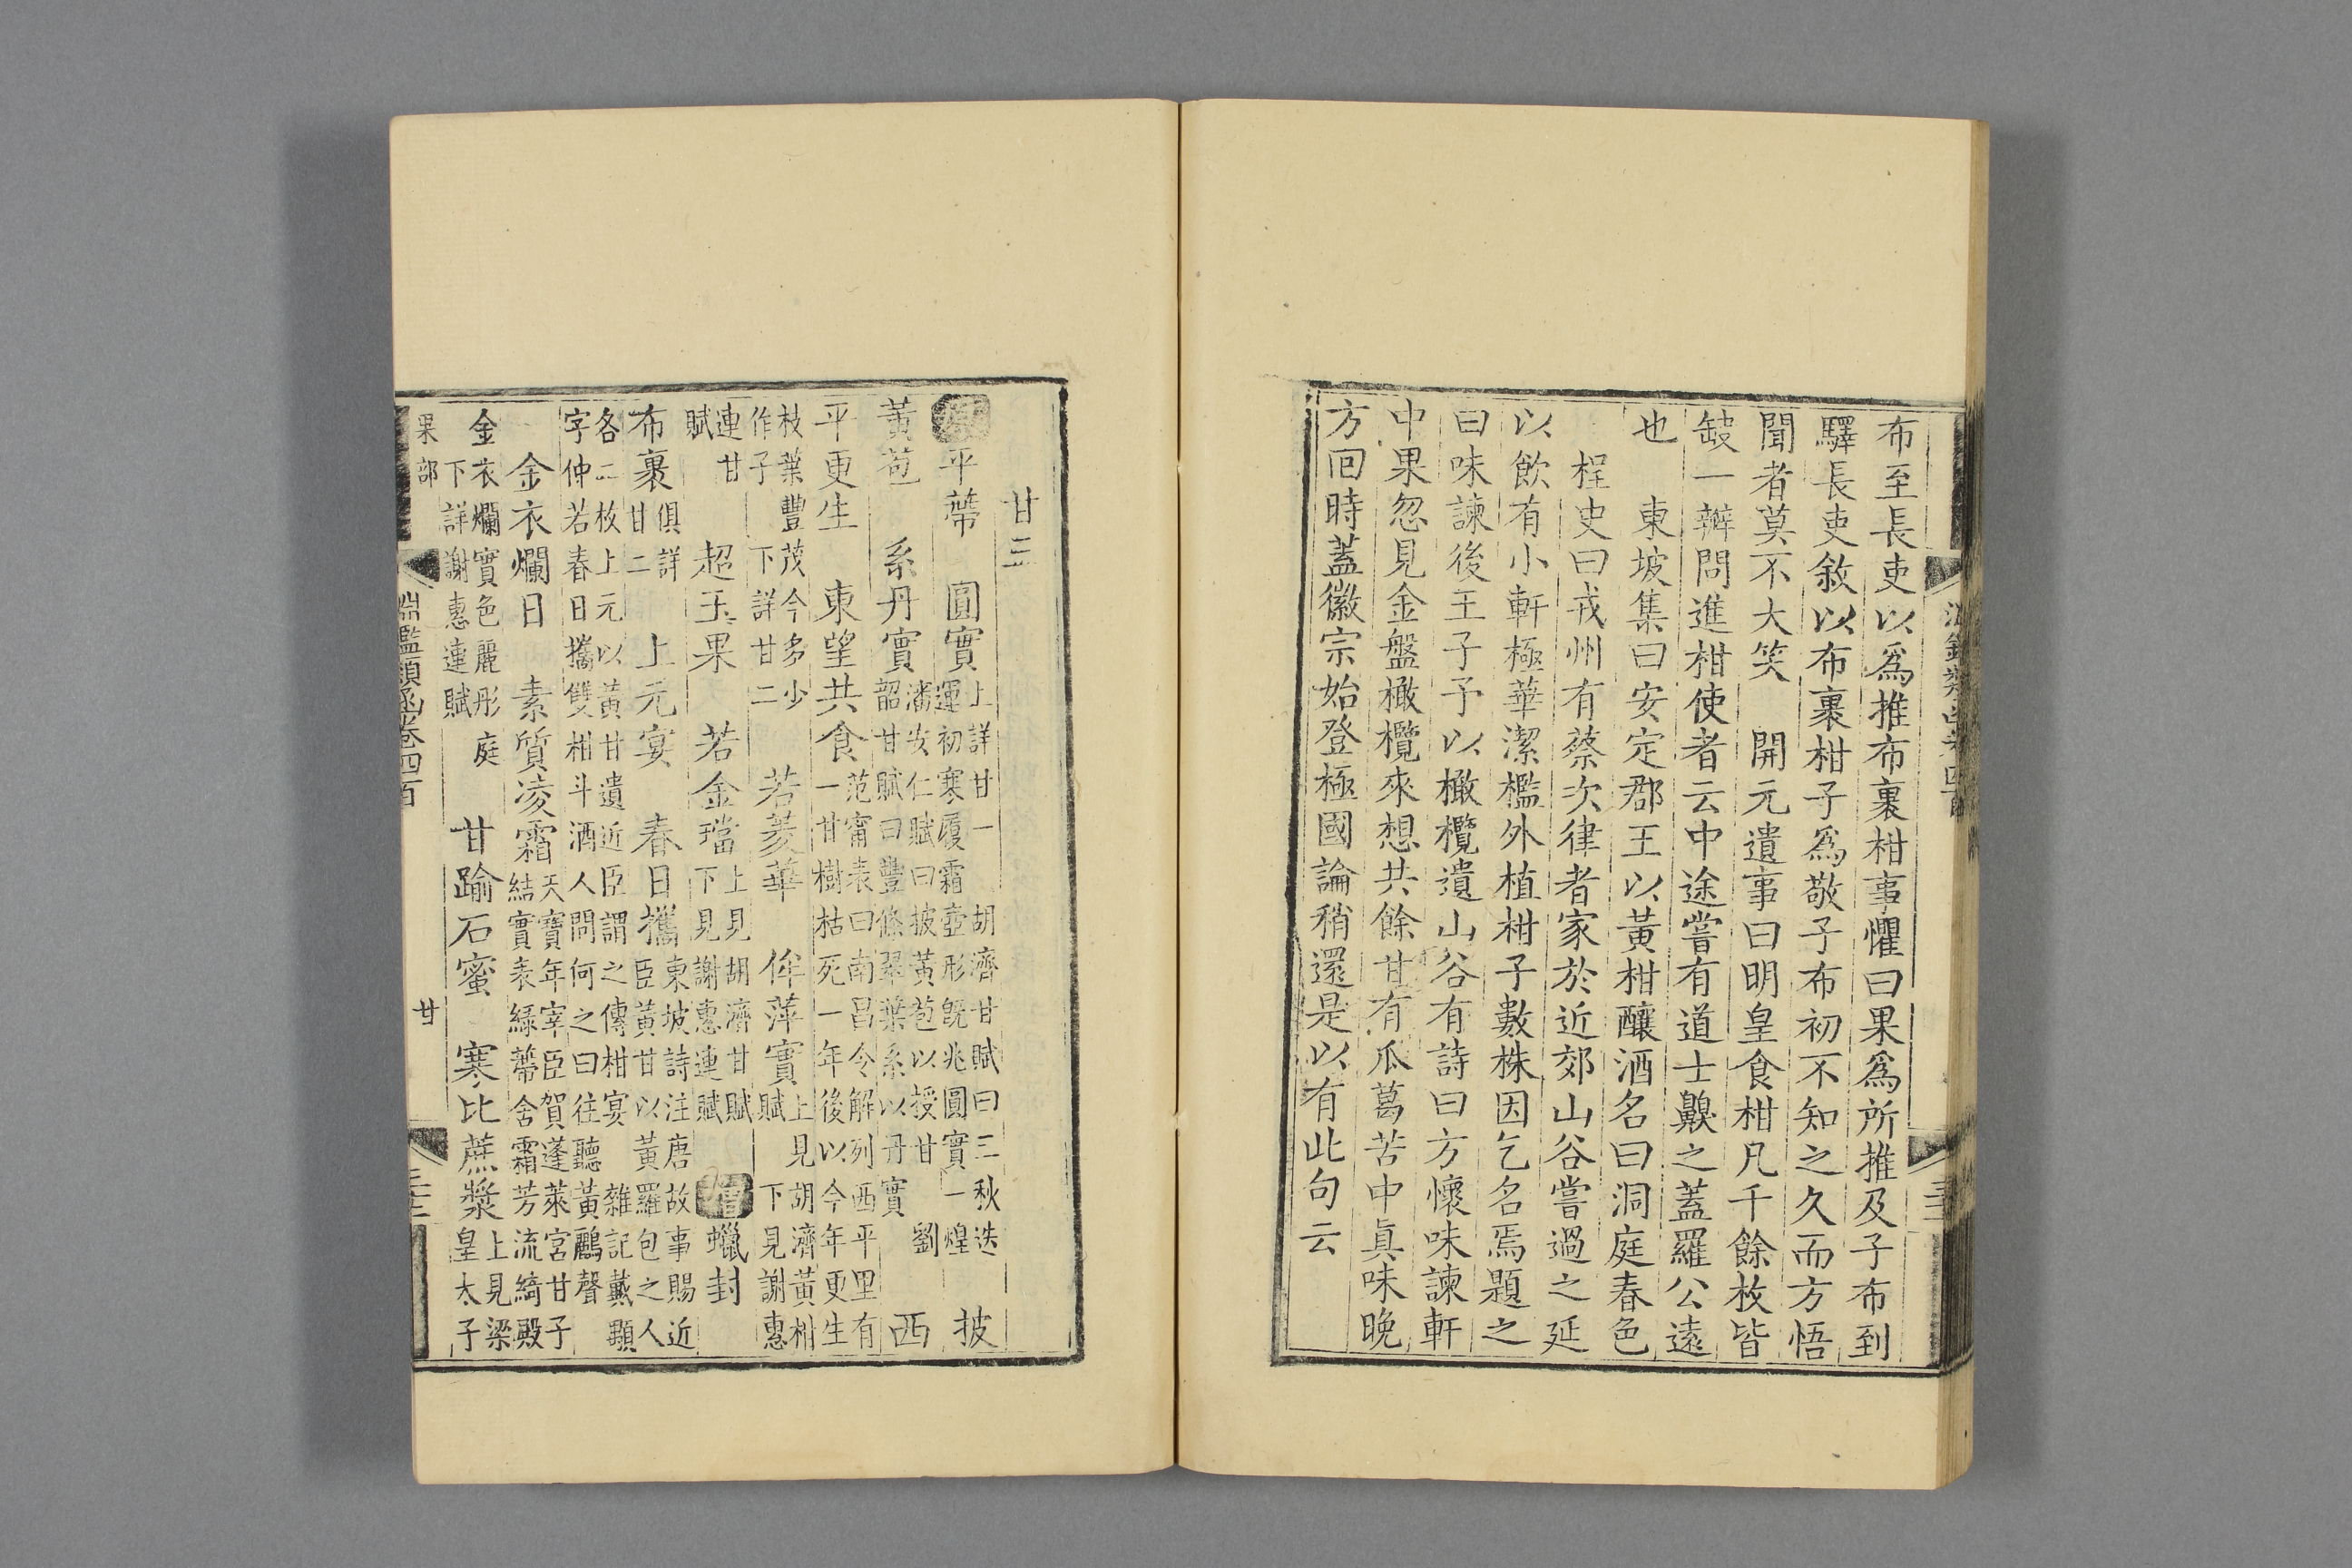 布至長吏以爲推布裹柑事懼曰果爲所推及子布到
驛長吏敘以布裹柑子爲敬子布初不知之久而方悟
聞者莫不大笑　開元遺事曰明皇食柑凡千餘枚皆
缺一瓣問進柑使者云中途嘗有道士齅之蓋羅公遠
也　東坡集曰安定郡王以黃柑釀酒名曰洞庭春色
桯史曰戎州有蔡次律者家於近郊山谷嘗過之延
以飲有小軒極華潔檻外植柑子數株因乞名焉題之
曰味諫後王子予以橄欖遺山谷有詩曰方懷味諫軒
中果忽見金盤橄欖來想共餘甘有瓜葛苦中眞味晚
方回時蓋徽宗始登極國論稍還是以有此句云
甘三
平蔕　圓實上詳甘一　胡濟甘賦曰三秋迭
運初寒履霜壺形旣兆圓實一煌　披
黃苞　系丹實潘安仁賦曰披黃苞以授甘　劉
韶甘賦曰豐條翠葉系以丹實　西
平更生　東望共食范甯表曰南昌令解列西平里有
一甘樹枯死一年後以今年更生
枝葉豐茂今多少
作子　下詳甘二　若菱華　侔萍實上見胡濟黃柑
賦　下見謝惠
連甘
賦　超玉果　若金璫上見胡濟甘賦
下見謝惠連賦　增　蠟封
布裹俱詳
甘二　上元宴　春日攜東坡詩注唐故事賜近
臣黃甘以黃羅包之人
各二枚上元以黃甘遺近臣謂之傳柑宴　雜記戴顒
字仲若春日攜雙柑斗酒人問何之曰往聽黃鸝聲
金衣爛日　素質凌霜天寶年宰臣賀蓬萊宮甘子
結實表綠蔕含霜芳流綺殿
金衣爛實色麗彤庭
下詳謝惠連賦　甘踰石蜜　寒比蔗漿上見梁
皇太子
果部　淵鑑類函卷四百　甘